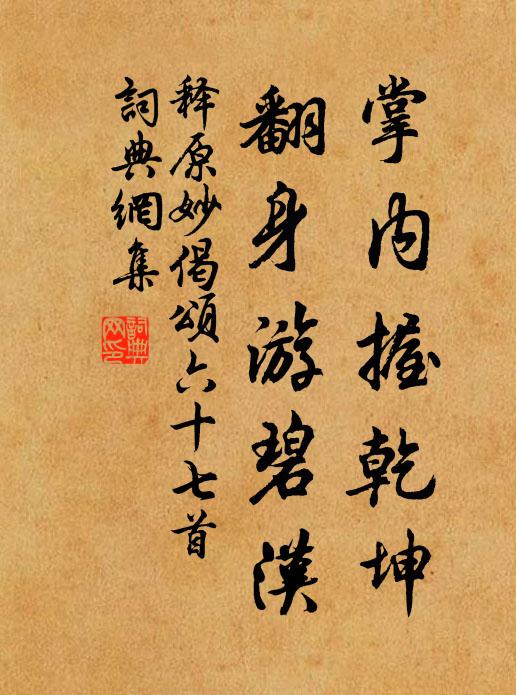 掌内握乾坤
翻身游碧漢
释原妙偈頌六十七首
詞典網集
詞典网印